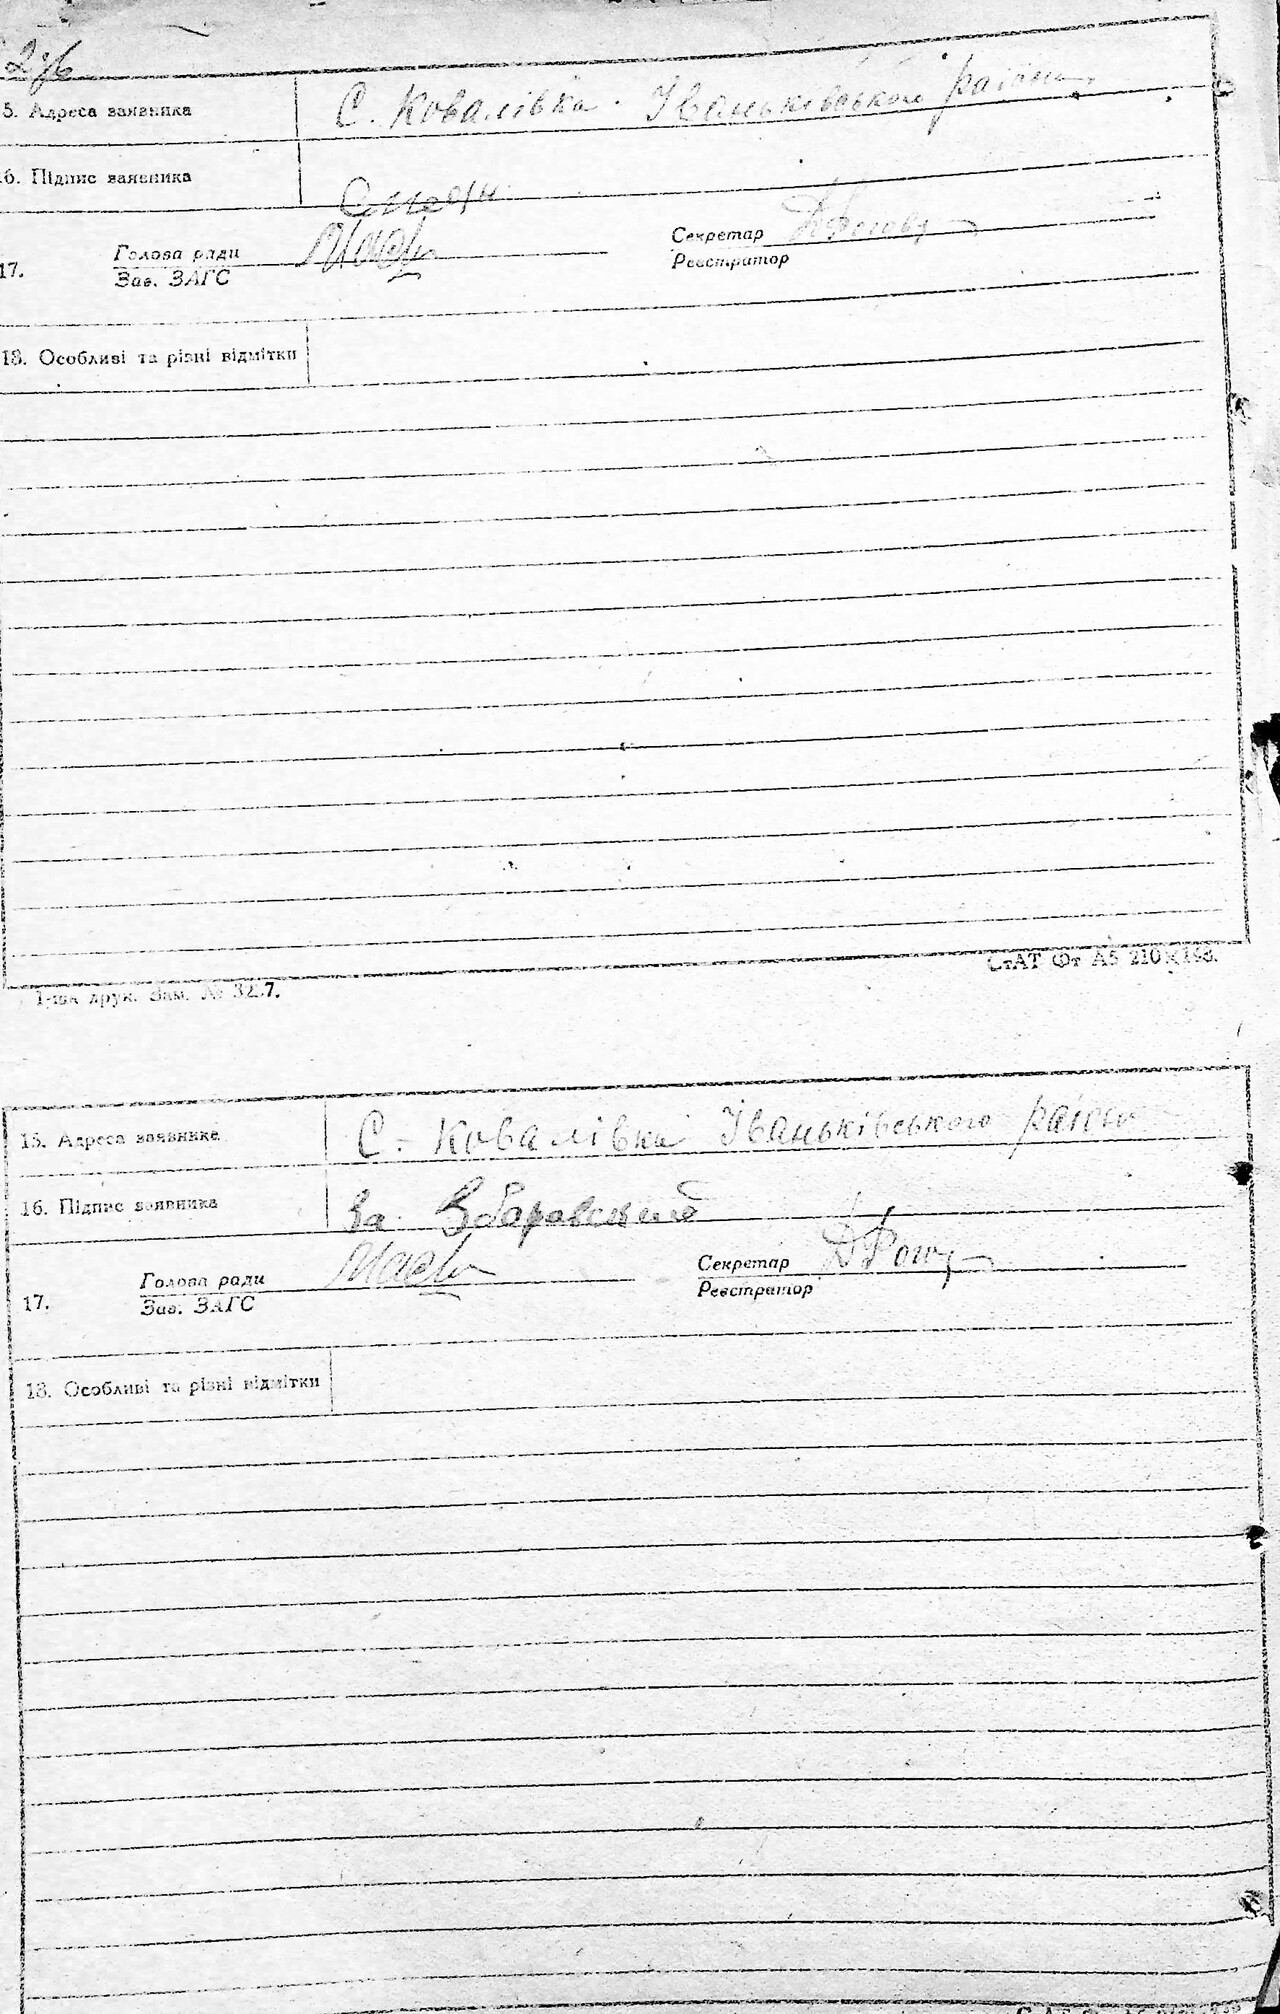 15. Адреса заявника С. Ковалівка Іваньківського району
16. Підпис заявника
17. Голова ради Секретар
Зав. ЗАГС Реєстратор
18. Особливі та різні відмітки
друк. Зам. №
СтАТ Фт А5 210×148.
15. Адреса заявника С. Ковалівка Іваньківського району
16. Підпис заявника За Зборовський
17. Голова ради Секретар
Зав. ЗАГС Реєстратор
18. Особливі та різні відмітки